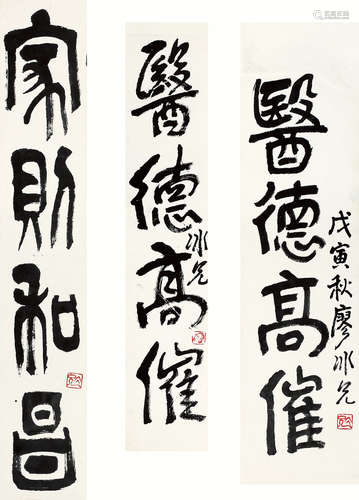 醫德高催
戊寅秋廖冰兄
醫德高催
冰兄
家則和昌